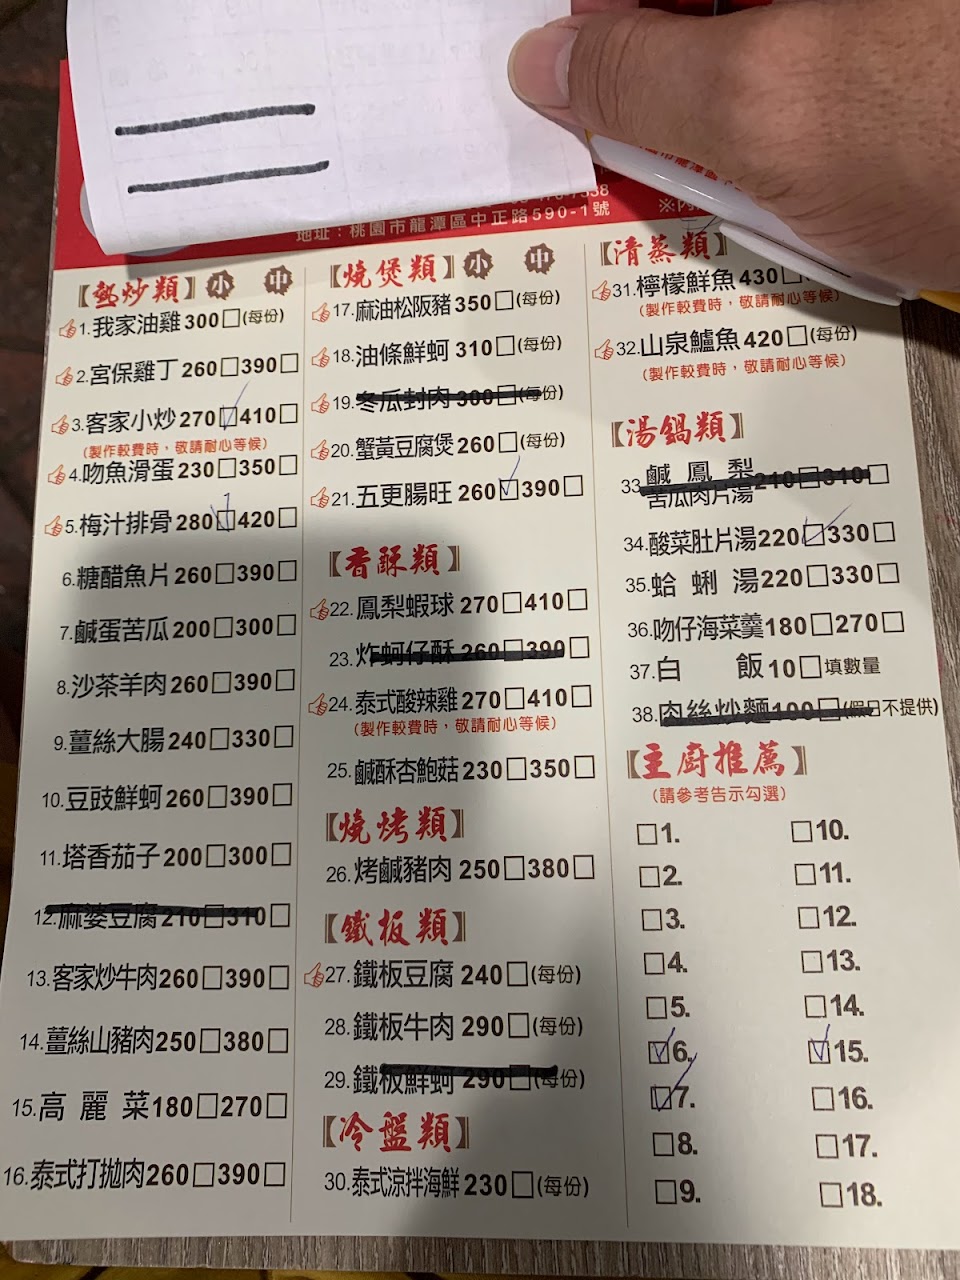 地址：桃園市龍潭區中正路590-1號
【熱炒類】小 中
1.我家油雞300□(每份)
2.宮保雞丁260□390□
3.客家小炒270☑410□
(製作較費時，敬請耐心等候)
4.吻魚滑蛋230□350□
5.梅汁排骨280☑420□
6.糖醋魚片260□390□
7.鹹蛋苦瓜200□300□
8.沙茶羊肉260□390□
9.薑絲大腸240□330□
10.豆豉鮮蚵260□390□
11.塔香茄子200□300□
12.麻婆豆腐210□310□
13.客家炒牛肉260□390□
14.薑絲山豬肉250□380□
15.高麗菜180□270□
16.泰式打拋肉260□390□
【燒煲類】小 中
17.麻油松阪豬350□(每份)
18.油條鮮蚵310□(每份)
19.冬瓜封肉300□(每份)
20.蟹黃豆腐煲260□(每份)
21.五更腸旺260☑390□
【香酥類】
22.鳳梨蝦球270□410□
23.炸蚵仔酥260□390□
24.泰式酸辣雞270□410□
(製作較費時，敬請耐心等候)
25.鹹酥杏鮑菇230□350□
【燒烤類】
26.烤鹹豬肉250□380□
【鐵板類】
27.鐵板豆腐240□(每份)
28.鐵板牛肉290□(每份)
29.鐵板鮮蚵290□(每份)
【冷盤類】
30.泰式涼拌海鮮230□(每份)
【清蒸類】
31.檸檬鮮魚430□
(製作較費時，敬請耐心等候)
32.山泉鱸魚420□(每份)
(製作較費時，敬請耐心等候)
【湯鍋類】
33.鹹鳳梨苦瓜肉片湯210□310□
34.酸菜肚片湯220☑330□
35.蛤蜊湯220□330□
36.吻仔海菜羹180□270□
37.白飯10□填數量
38.肉絲炒麵100□(假日不提供)
【主廚推薦】
(請參考告示勾選)
□1. □10.
□2. □11.
□3. □12.
□4. □13.
□5. □14.
☑6. ☑15.
☑7. □16.
□8. □17.
□9. □18.